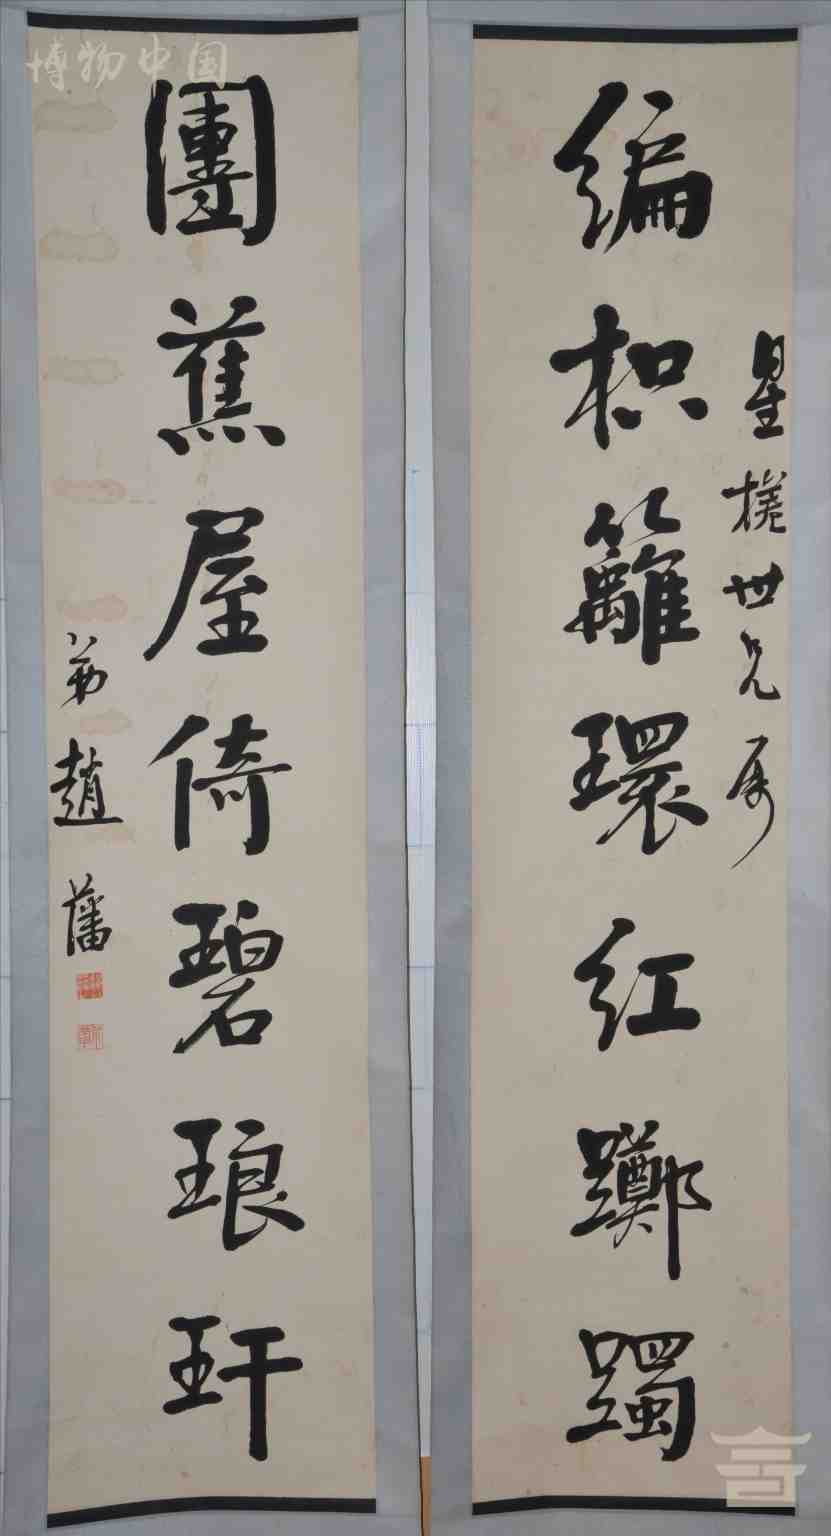 星槎世兄属
編枳籬環紅躑躅
團蕉屋倚碧琅玕
弟趙藩
博物中国